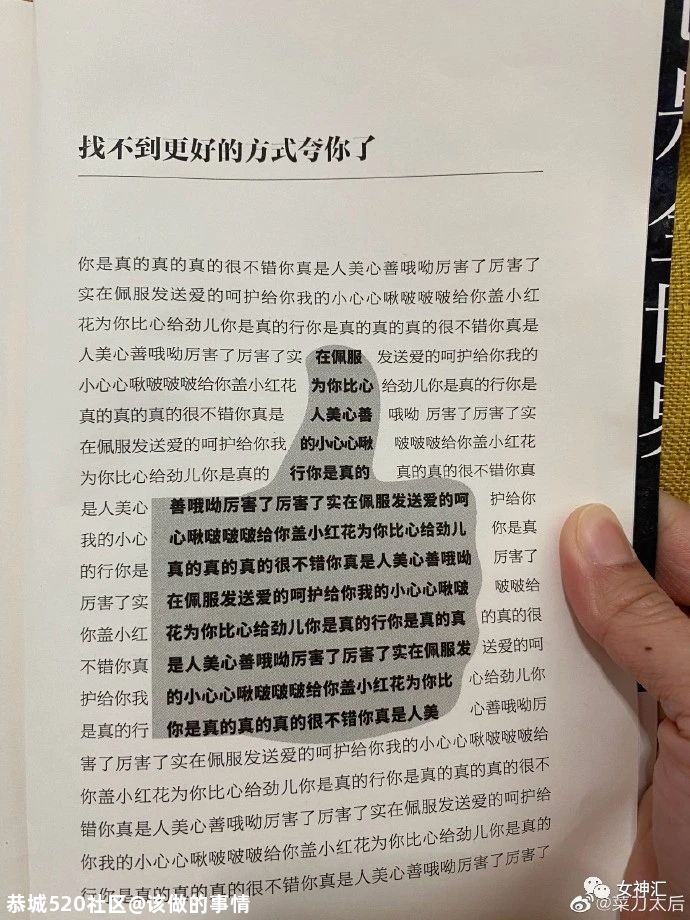 找不到更好的方式夸你了
你是真的真的真的很不错你真是人美心善哦呦厉害了厉害了
实在佩服发送爱的呵护给你我的小心心啾啵啵啵给你盖小红
花为你比心给劲儿你是真的行你是真的真的真的很不错你真是
人美心善哦呦厉害了厉害了实 在佩服 发送爱的呵护给你我的
小心心啾啵啵啵给你盖小红花 为你比心 给劲儿你是真的行你是
真的真的真的很不错你真是 人美心善 哦呦 厉害了厉害了实
在佩服发送爱的呵护给你我 的小心心啾 啵啵啵给你盖小红花
为你比心给劲儿你是真的 行你是真的 真的真的很不错你真
是人美心 善哦呦厉害了厉害了实在佩服发送爱的呵 护给你
我的小心 心啾啵啵啵给你盖小红花为你比心给劲儿 你是真
的行你是 真的真的真的很不错你真是人美心善哦呦 厉害了
厉害了实 在佩服发送爱的呵护给你我的小心心啾啵 啵啵给
你盖小红 花为你比心给劲儿你是真的行你是真的真 的真的很
不错你真 是人美心善哦呦厉害了厉害了实在佩服发 送爱的呵
护给你我 的小心心啾啵啵啵给你盖小红花为你比 心给劲儿你
是真的行 你是真的真的真的很不错你真是人美 心善哦呦厉
害了厉害了实在佩服发送爱的呵护给你我的小心心啾啵啵啵给
你盖小红花为你比心给劲儿你是真的行你是真的真的真的很不
错你真是人美心善哦呦厉害了厉害了实在佩服发送爱的呵护给
你我的小心心啾啵啵啵给你盖小红花为你比心给劲儿你是真的
行你是真的真的真的很不错你真是人美心善哦呦厉害了厉害了
女神汇
恭城520社区@该做的事情
@菜刀太后